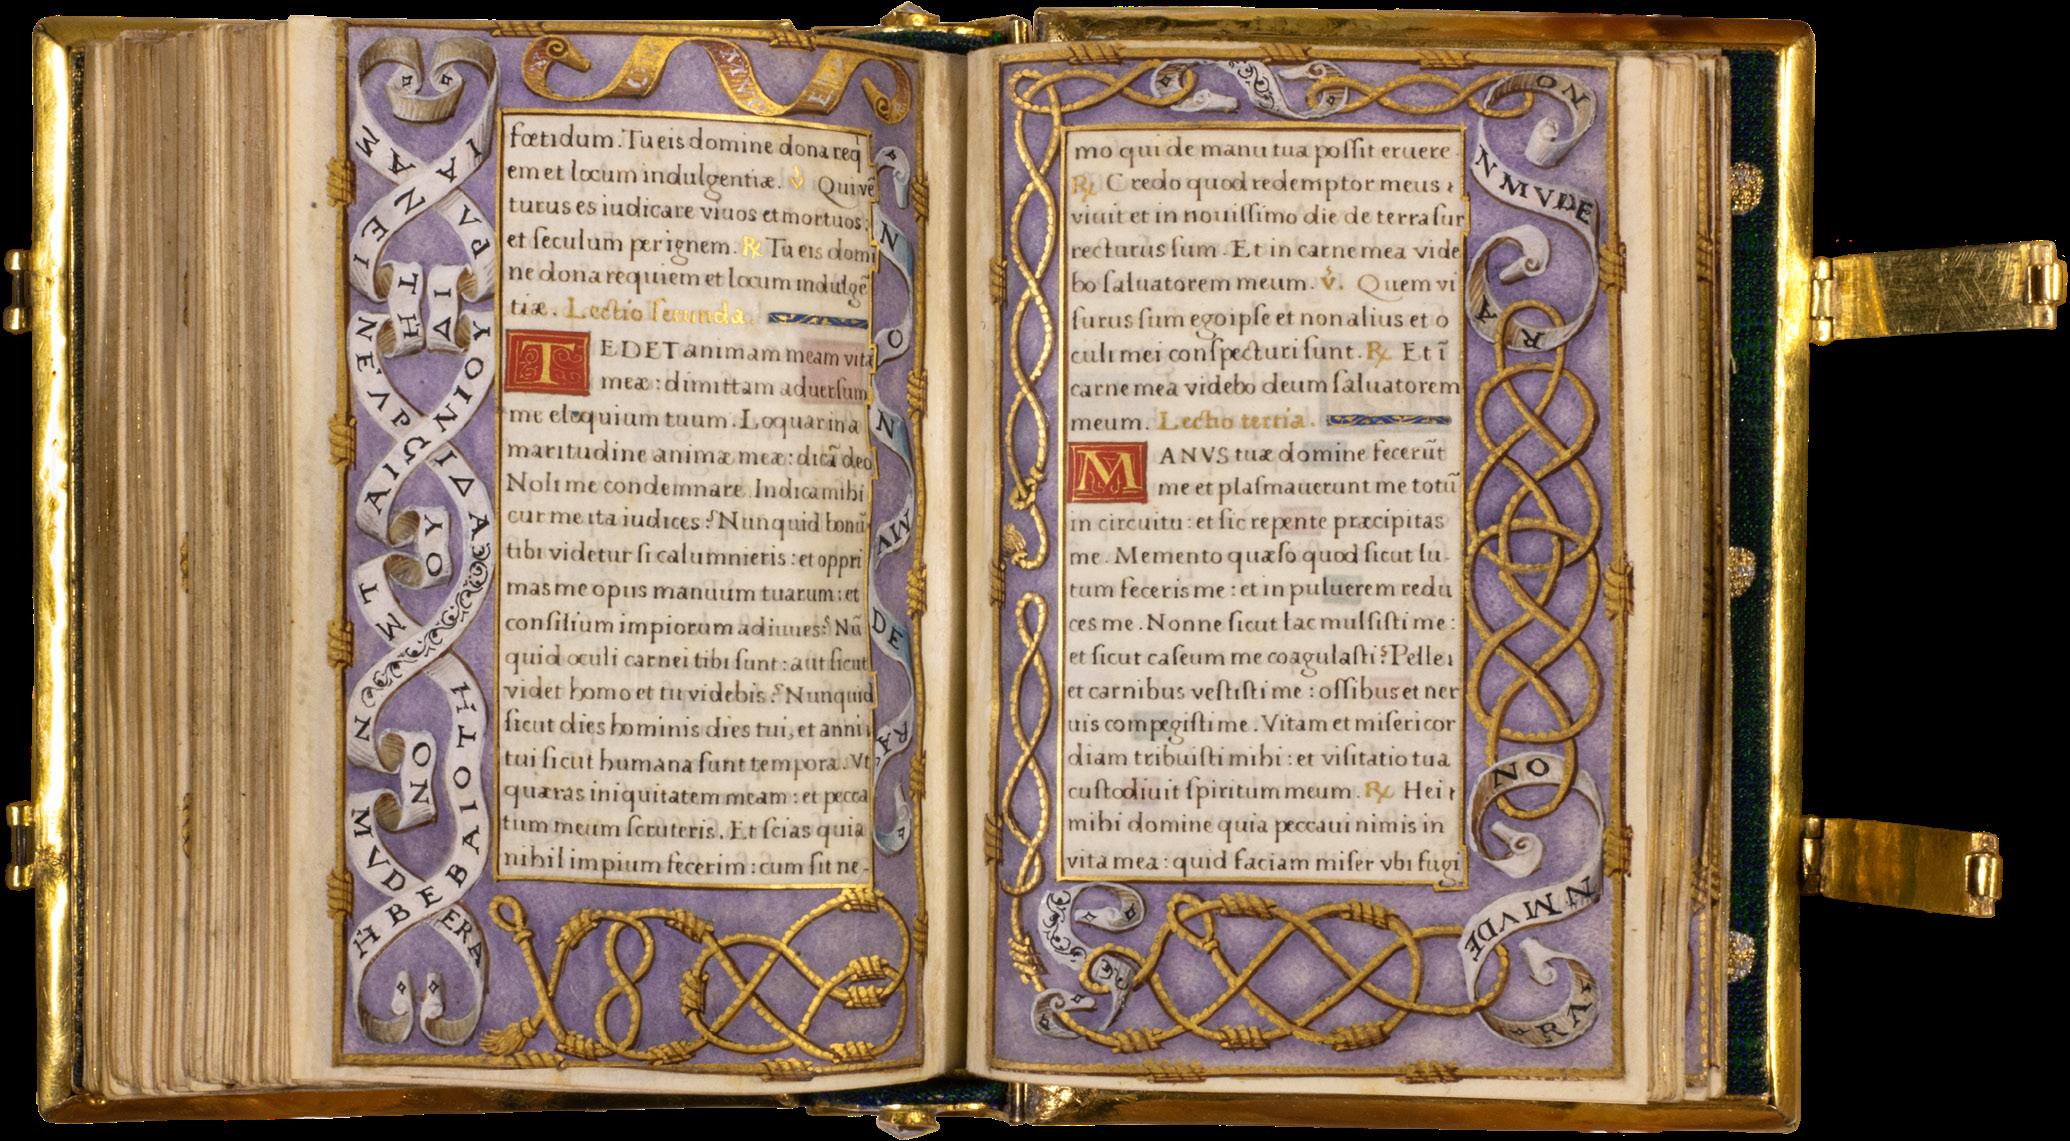 fœtidum. Tu eis domine dona req
em et locum indulgentiæ. ℣ Qui vē
turus es iudicare viuos et mortuos:
et seculum per ignem. ℟ Tu eis domi
ne dona requiem et locum indulgē
tiæ. Lectio secunda.
TEDET animam meam vita
meæ: dimittam aduersum
me eloquium tuum. Loquar in a
maritudine animæ meæ: dicā deo
Noli me condemnare. Indica mihi
cur me ita iudices? Nunquid bonū
tibi videtur si calumnieris: et oppri
mas me opus manuum tuarum: et
consilium impiorum adiuues? Nū
quid oculi carnei tibi sunt: aut sicut
videt homo et tu videbis? Nunquid
sicut dies hominis dies tui, et anni
tui sicut humana sunt tempora. Vt
quæras iniquitatem meam: et pecca
tum meum scruteris. Et scias quia
nihil impium fecerim: cum sit ne-
mo qui de manu tua possit eruere.
℟ Credo quod redemptor meus
viuit et in nouissimo die de terra sur
recturus sum. Et in carne mea vide
bo saluatorem meum. ℣. Quem vi
surus sum ego ipse et non alius et o
culi mei conspecturi sunt. ℟ Et ī
carne mea videbo deum saluatorem
meum. Lectio tertia.
MANVS tuæ domine fecerūt
me et plasmauerunt me totū
in circuitu: et sic repente præcipitas
me. Memento quæso quod sicut lu-
tum feceris me: et in puluerem redu
ces me. Nonne sicut lac mulsisti me:
et sicut caseum me coagulasti? Pelle
et carnibus vestisti me: ossibus et ner
uis compegisti me. Vitam et misericor
diam tribuisti mihi: et visitatio tua
custodiuit spiritum meum. ℟ Hei
mihi domine quia peccaui nimis in
vita mea: quid faciam miser vbi fugi
N
O
N
MV
DE
RA
ON
NMVDE
RA
NO
NMVDE
RA